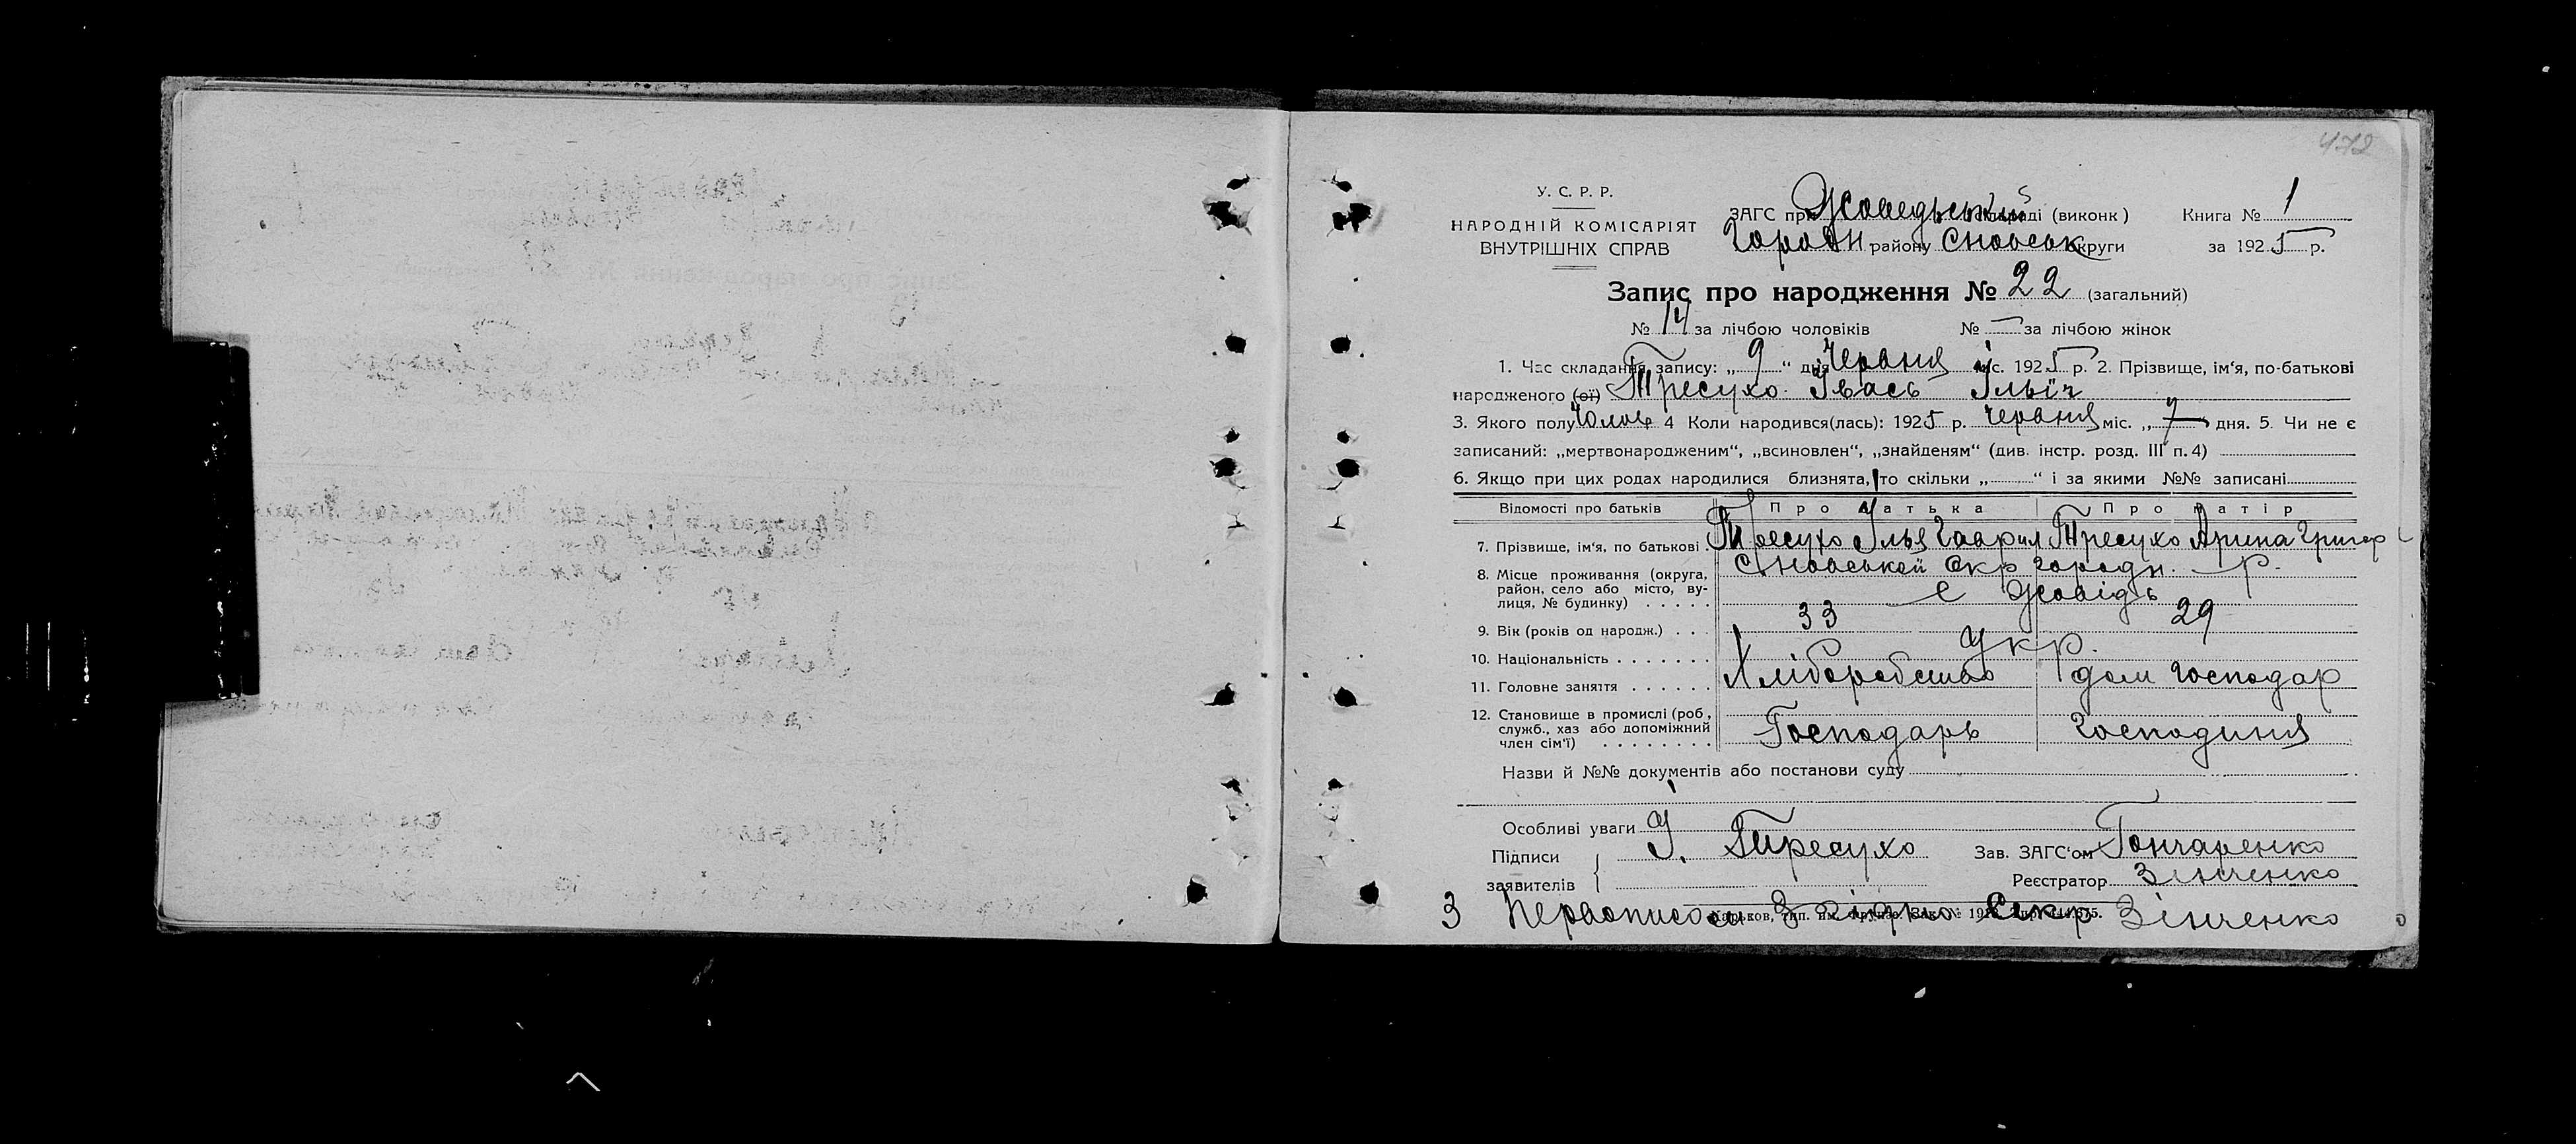 472
У. С. Р. Р.
НАРОДНІЙ КОМІСАРІЯТ
ВНУТРІШНІХ СПРАВ
ЗАГС при Жоведьський сільраді (виконк)
Городн району Сновськ округи
Книга № 1
за 1925 р.
Запис про народження № 22 (загальний)
№ 14 за лічбою чоловіків № — за лічбою жінок
1. Час складання запису: „ 9 “ дня Червня міс. 1925 р. 2. Прізвище, ім‘я, по-батькові
народженого (ої) Тресухо Івась Ільїч
3. Якого полу Чолов 4 Коли народився(лась): 1925 р. Червня міс. „ 7 дня. 5. Чи не є
записаний: „мертвонародженим“, „всиновлен“, „знайденям“ (див. інстр. розд. III п. 4)
6. Якщо при цих родах народилися близнята, то скільки „ “ і за якими №№ записані
Відомості про батьків Про батька Про матір
7. Прізвище, ім‘я, по батькові. Тресухо Ілья Гаврил Тресухо Арина Григор
8. Місце проживання (округа, район, село або місто, вулиця, № будинку) Сновської Окр Городн. р.
с Жовідь
9. Вік (років од народж.) 33 29
10. Національність Укр.
11. Головне заняття Хліборобство дом господар
12. Становище в промислі (роб, служб., хаз або допоміжний член сім‘ї) Господарь Господиня
Назви й №№ документів або постанови суду
Особливі уваги
Підписи заявителів І. Тресухо
Зав. ЗАГС‘ом Гончаренко
Реєстратор Зінченко
З Первописом Згідно Секр Зінченко